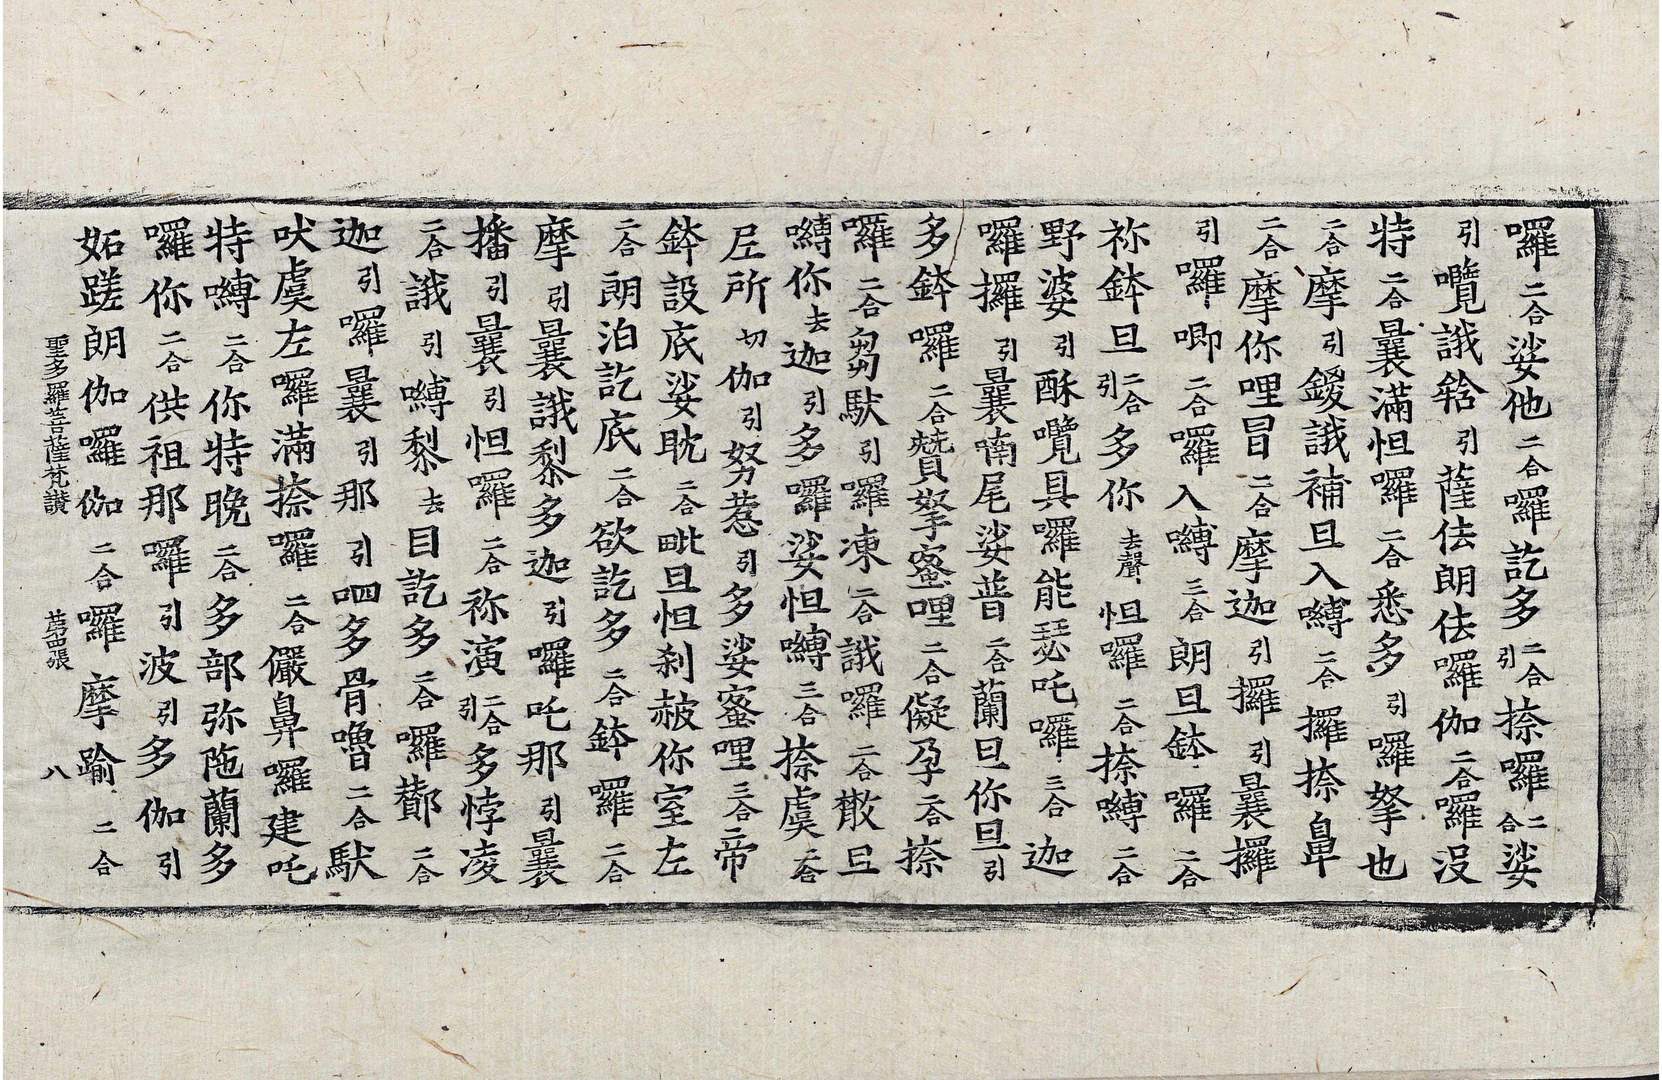 囉二合娑他二合囉訖多二合引捺囉二合娑
引嚂誐飹引薩佉朗佉囉伽二合囉沒
特二合曩滿怛囉二合悉多引囉拏也
二合摩引鑁誐補旦入嚩二合攞捺鼻
二合摩你哩冒二合摩迦引攞引曩攞
引囉唧二合囉入嚩三合朗旦鉢囉二合
祢鉢旦二合引多你去聲怛囉二合捺嚩二合
野婆引酥嚂具囉能瑟吒囉三合迦
囉攞引曩喃尾娑普二合蘭旦你旦引
多鉢囉二合贊拏蜜哩二合儗孕二合捺
囉二合芻馱引囉凍二合誐囉二合散旦
嚩你去迦引多囉娑怛嚩三合捺虞二合
左所切伽引努惹引多娑蜜哩三合帝
鉢設底娑眈二合毗旦怛刹赦你室左
二合朗泊訖底二合欲訖多二合鉢囉二合
摩引曩誐黎多迦引囉吒那引曩
播引曩引怛囉二合祢演二合引多悖凌
二合誐引嚩黎去目訖多二合囉酇二合
迦引囉曩引那引呬多骨嚕二合馱
吠虞左囉滿捺囉二合儼鼻囉建吒
特嚩二合你特晚二合多部弥陁蘭多
囉你二合供祖那囉引波引多伽引
妬蹉朗伽囉伽二合囉摩踰二合
聖多羅菩薩梵讚 苐四張 八